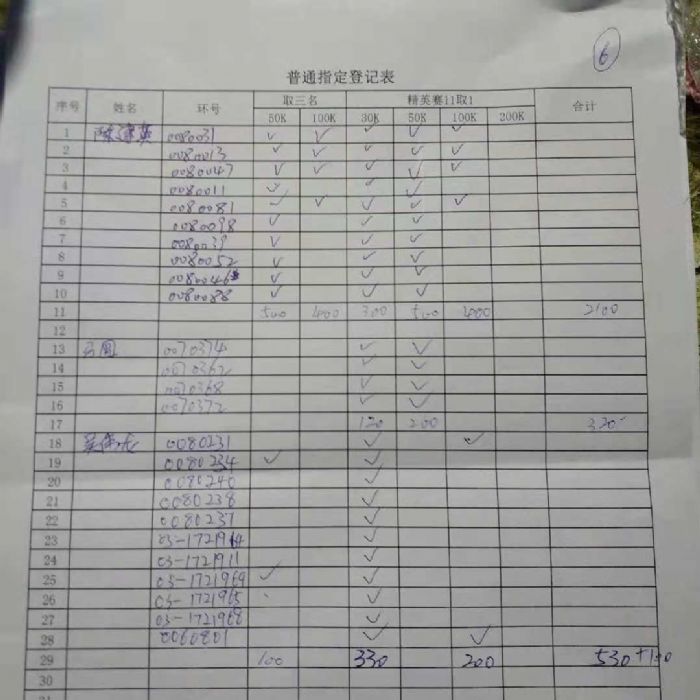 6
普通指定登记表
序号 姓名 环号 取三名 精英赛11取1 合计
50K 100K 30K 50K 100K 200K
1 0080031 ✓ ✓ ✓ ✓ ✓
2 0080013 ✓ ✓ ✓ ✓ ✓
3 0080047 ✓ ✓ ✓ ✓ ✓
4 0080011 ✓ ✓ ✓
5 0080081 ✓ ✓ ✓ ✓ ✓
6 0080098 ✓ ✓ ✓
7 0080039 ✓ ✓ ✓
8 0080052 ✓ ✓ ✓
9 0080046 ✓ ✓ ✓
10 0080088 ✓ ✓ ✓
11 500 400 300 500 400 2100
12
13 0070374 ✓ ✓
14 0070362 ✓ ✓
15 0070368 ✓ ✓
16 0070372 ✓ ✓
17 120 200 320
18 0080231 ✓ ✓
19 0080234 ✓ ✓
20 0080240 ✓
21 0080238 ✓
22 0080237 ✓
23 03-1721964 ✓
24 03-1721911 ✓
25 03-1721969 ✓ ✓
26 03-1721965 ✓
27 03-1721968 ✓
28 0060801 ✓ ✓
29 100 330 200 530+100
30